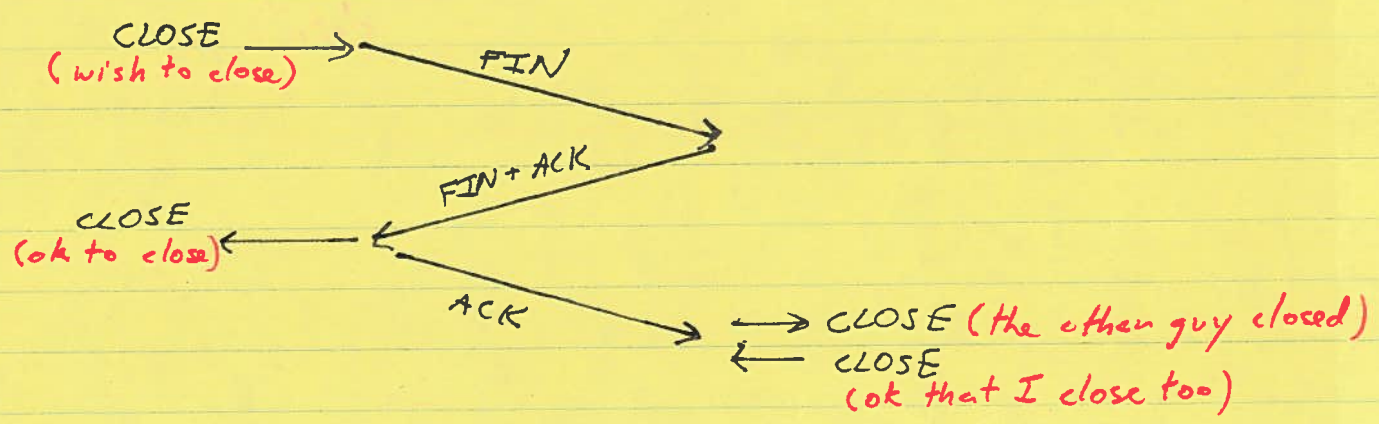 CLOSE
(wish to close)
FIN
FIN + ACK
CLOSE
(ok to close)
ACK
CLOSE (the other guy closed)
CLOSE
(ok that I close too)